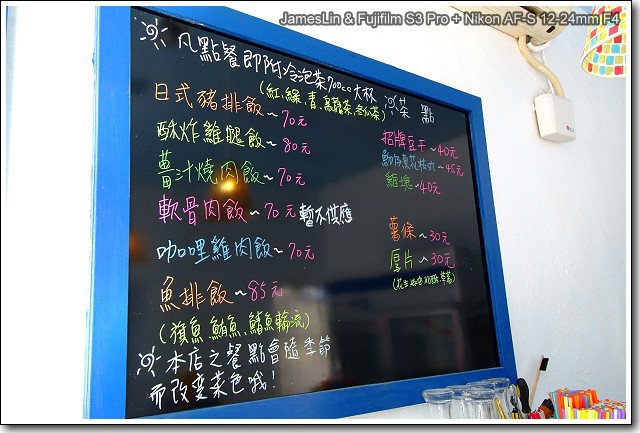 JamesLin & Fujifilm S3 Pro + Nikon AF-S 12-24mm F4
凡點餐即附冷泡茶700cc大杯
(紅,綠,青,烏龍茶,冬瓜茶)
日式豬排飯~70元
酥炸雞腿飯~80元
薑汁燒肉飯~70元
軟骨肉飯~70元 暫不供應
咖哩雞肉飯~70元
魚排飯~85元
(旗魚 鮪魚 鱔魚輪流)
本店之餐點會隨季節
而改变菜色哦!
茶點
招牌豆干~40元
花枝丸~45元
雞塊~40元
薯條~30元
厚片~30元